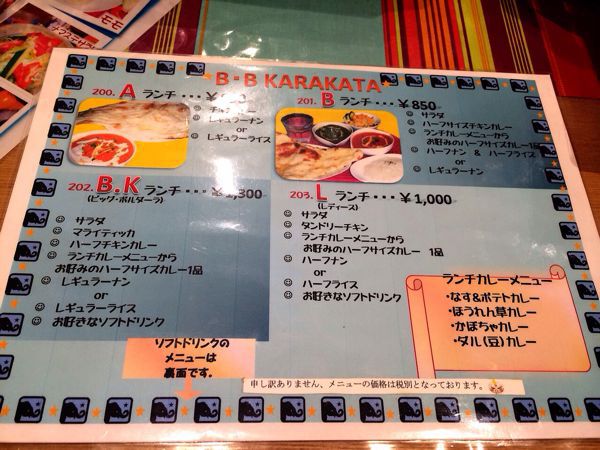 モモ
B・B KARAKATA
200. A ランチ・・・¥
レギュラーナン
or
レギュラーライス
201. B ランチ・・・¥850
サラダ
ハーフサイズチキンカレー
ランチカレーメニューから
お好みのハーフサイズカレー1品
ハーフナン & ハーフライス
or
レギュラーナン
202. B.K ランチ・・・¥1,300
(ビッグ・ボルダーラ)
サラダ
マライティッカ
ハーフチキンカレー
ランチカレーメニューから
お好みのハーフサイズカレー1品
レギュラーナン
or
レギュラーライス
お好きなソフトドリンク
203. L ランチ・・・¥1,000
(レディース)
サラダ
タンドリーチキン
ランチカレーメニューから
お好みのハーフサイズカレー 1品
ハーフナン
or
ハーフライス
お好きなソフトドリンク
ランチカレーメニュー
・なす&ポテトカレー
・ほうれん草カレー
・かぼちゃカレー
・ダル(豆)カレー
ソフトドリンクの
メニューは
裏面です。
申し訳ありません、メニューの価格は税別となっております。